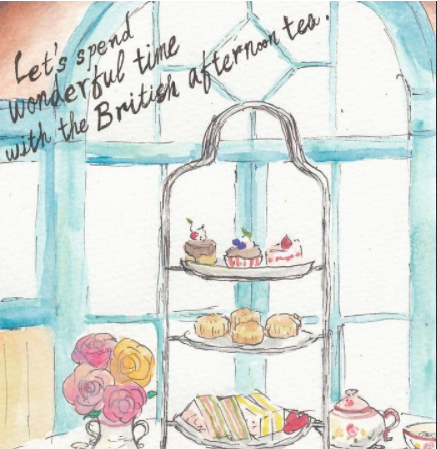 Let's spend
wonderful time
with the British afternoon tea.